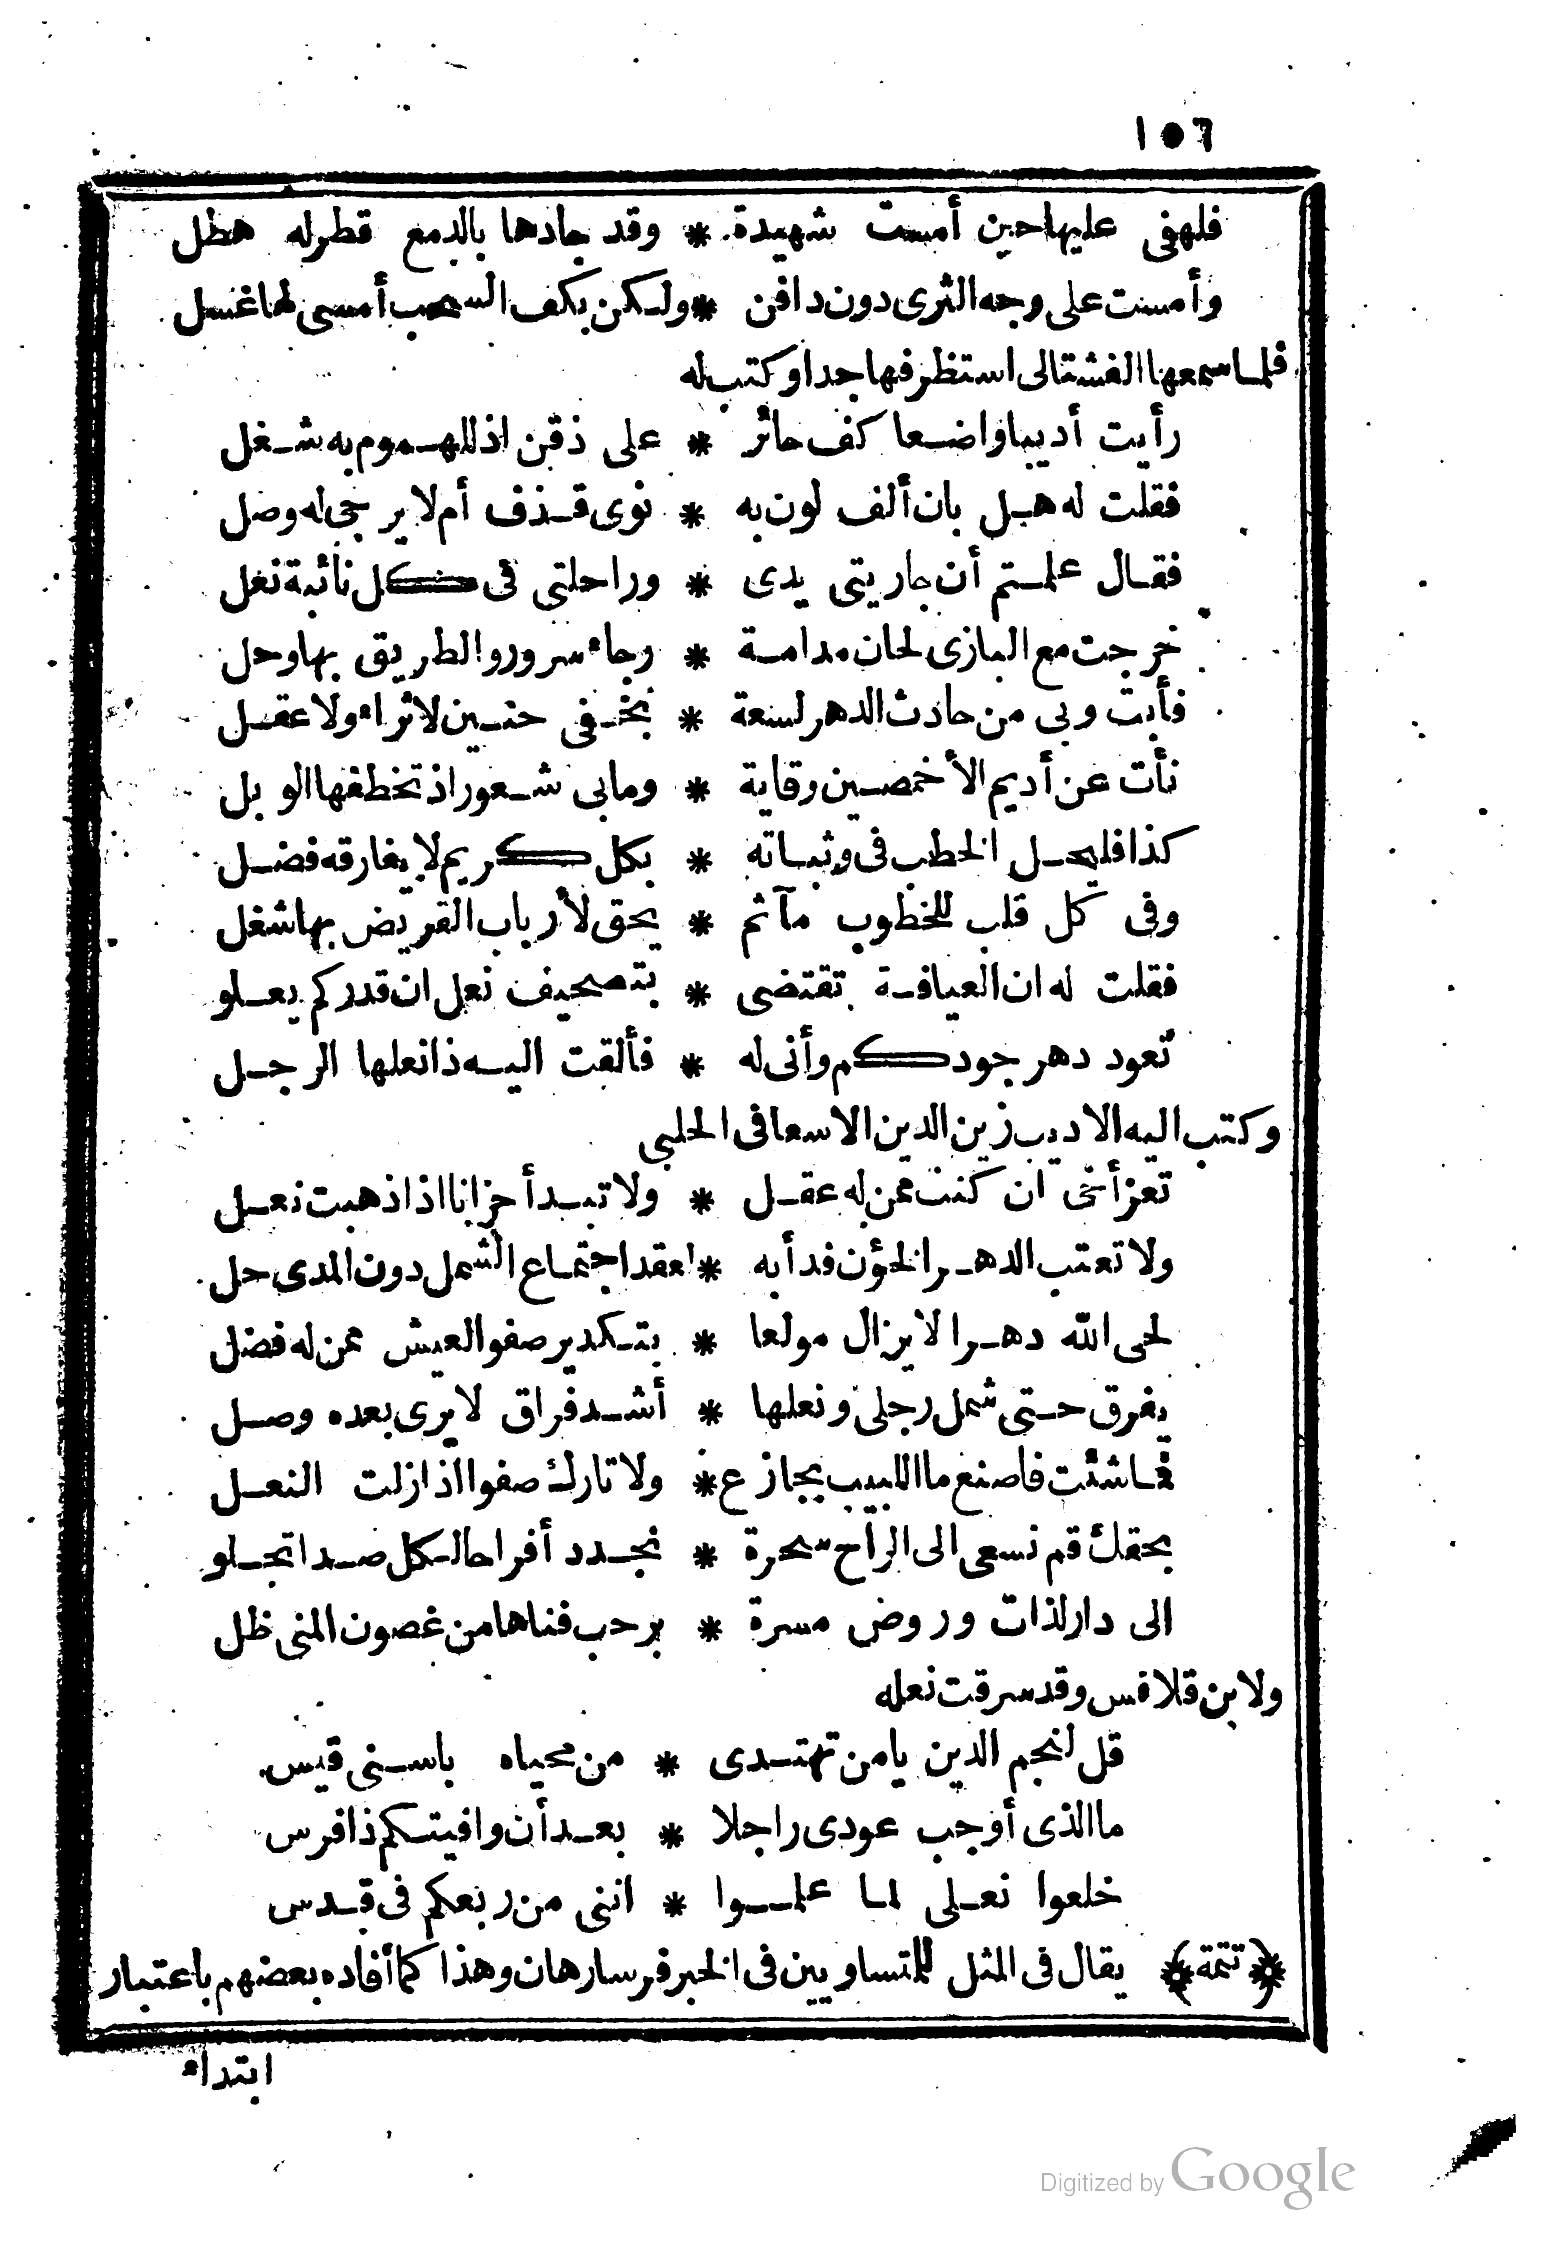 ١٥٦
فلهفى عليها حين أمست شهيدة * وقد جادها بالدمع قطر له هطل
وأمست على وجه الثرى دون دافن * ولكن بكف السحب أمسى لها غسل
فلما سمعها الفشتالى استظرفها جدا وكتب له
رأيت أديبا واضعا كف حائر * على ذقن اذ للهموم به شغل
فقلت له هبل بان ألف لون به * نوى قذف أم لا يرجى له وصل
فقال علمتم أن جاريتى يدى * وراحلتى فى كل نائبة نعل
خرجت مع البازى لحان مدامة * رجاء سرور والطريق بها وحل
فأبت وبى من حادث الدهر لسعة * بخفى حنين لا ثراء ولا عقل
نأت عن أديم الأخمصين وقاية * ومابى شعور اذ تخطفها الوبل
كذا فليحل الخطب فى وثباته * بكل كريم لا يفارقه فضل
وفى كل قلب للخطوب مآثم * يحق لأرباب القريض بها شغل
فقلت له ان العيافة تقتضى * بتصحيف نعل ان قدركم يعلو
تعود دهر جودكم وأنى له * فألقت اليه ذا نعلها الرجل
وكتب اليه الاديب زين الدين الاسعافى الحلبى
تعز أخى ان كنت ممن له عقل * ولا تبد أحزانا اذا ذهبت نعل
ولا تعتب الدهر الخؤن فدأبه * لعقد اجتماع الشمل دون المدى حل
لحى الله دهرا لا يزال مولعا * بتكدير صفو العيش ممن له فضل
يفرق حتى شمل رجلى ونعلها * أشد فراق لا يرى بعده وصل
فماشئت فاصنع ما اللبيب بجازع * ولا تارك صفوا اذا زلت النعل
بحقك قم نسعى الى الراح سحرة * نجدد أفراحا لكل صدا تجلو
الى دار لذات وروض مسرة * برحب فناها من غصون المنى ظل
ولابن قلاقس وقد سرقت نعله
قل لنجم الدين يا من نهتدى * من محياه باسنى قبس
ما الذى أوجب عودى راجلا * بعد أن وافيتكم ذا فرس
خلعوا نعلى لما علموا * اننى من ربعكم فى قدس
﴿تتمة﴾ يقال فى المثل للمتساويين فى الخير فرسارهان وهذا كما أفاده بعضهم باعتبار
ابتداء
Digitized by Google